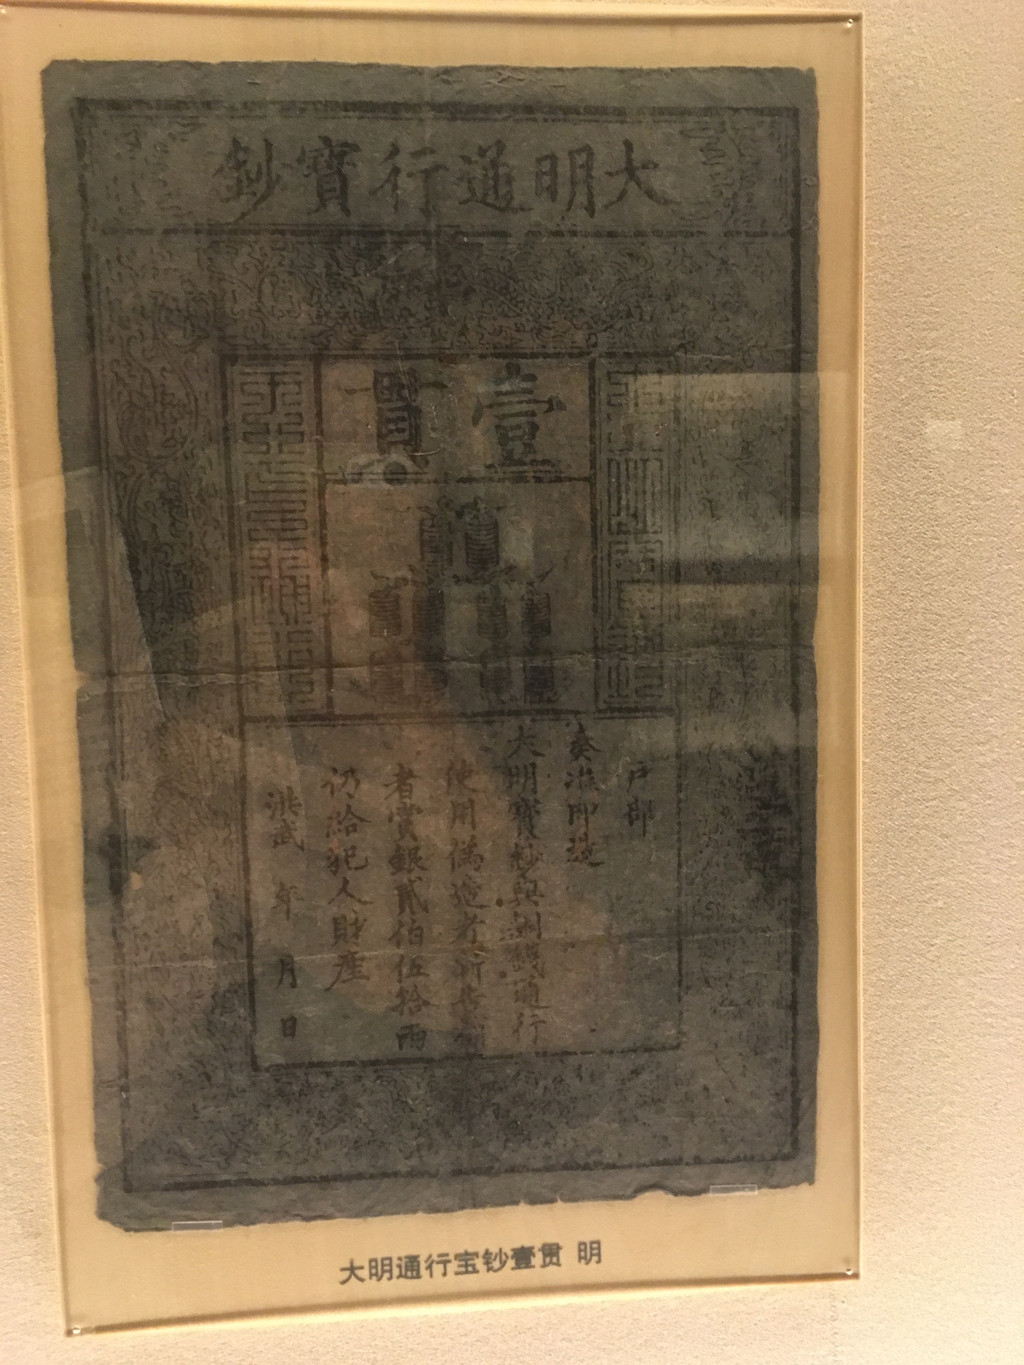 大明通行寶鈔
壹貫
戶部
奏准印造
大明寶鈔與銅錢通行
使用偽造者斬告捕
者賞銀貳伯伍拾兩
仍給犯人財產
洪武 年 月 日
大明通行宝钞壹贯 明